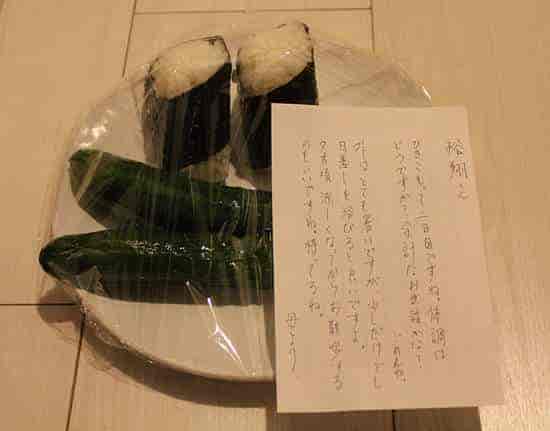 松翔え
ひきこもって二日目ですね。体調は
どうですか？余計なお世話かな？
外はとても暑いですが、少しだけでも
日差しを浴びると良いですよ。
夕方頃涼しくなってからお散歩する
のもいいですね。待ってるね。
母より